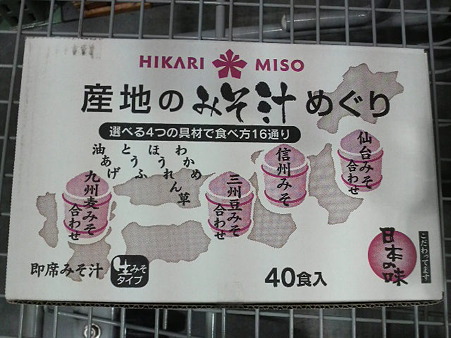 HIKARI MISO
産地のみそ汁めぐり
選べる4つの具材で食べ方16通り
わかめ
ほうれん草
とうふ
油あげ
仙台みそ合わせ
信州みそ
三州豆みそ合わせ
九州麦みそ合わせ
即席みそ汁
生みそタイプ
40食入
日本の味
こだわってます